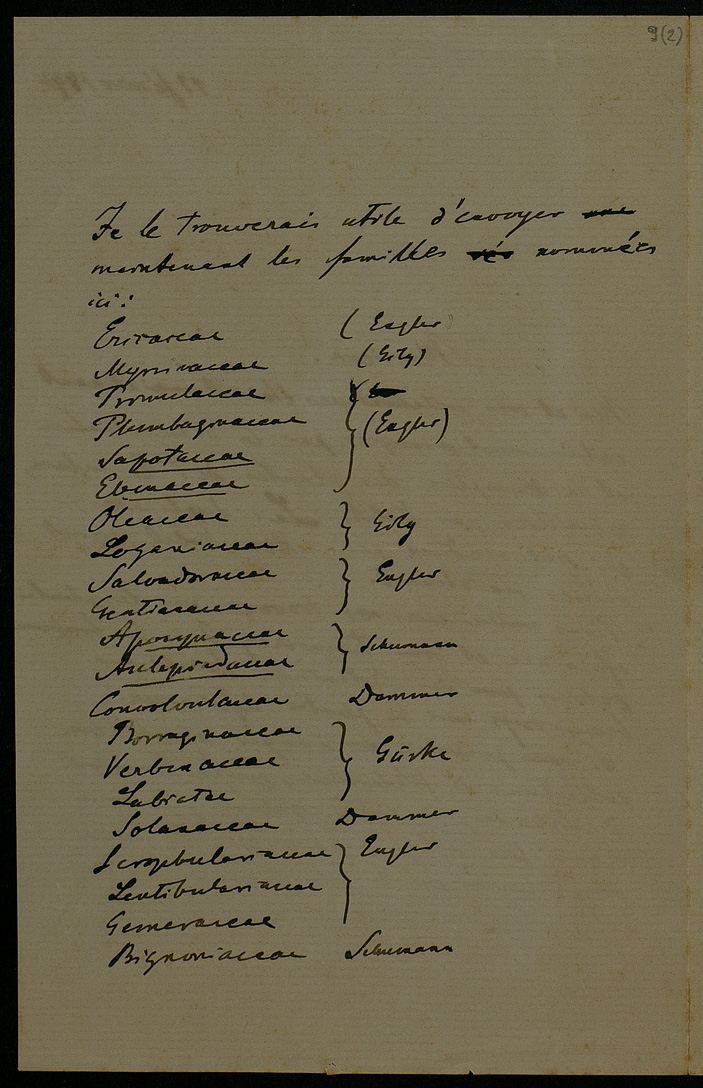 9(2)
Je le trouverais utile d'envoyer
maintenant les familles nommées
ici:
Ericaceae (Engler)
Myrsinaceae (Gilg)
Primulaceae
Plumbaginaceae (Engler)
Sapotaceae
Ebenaceae
Oleaceae
Loganiaceae } Gilg
Salvadoraceae } Engler
Gentianaceae
Apocynaceae } Schumann
Asclepiadaceae
Convolvulaceae Dammer
Borraginaceae
Verbenaceae } Gürke
Labiatae
Solanaceae Dammer
Scrophulariaceae } Engler
Lentibulariaceae
Gesneraceae
Bignoniaceae Schumann